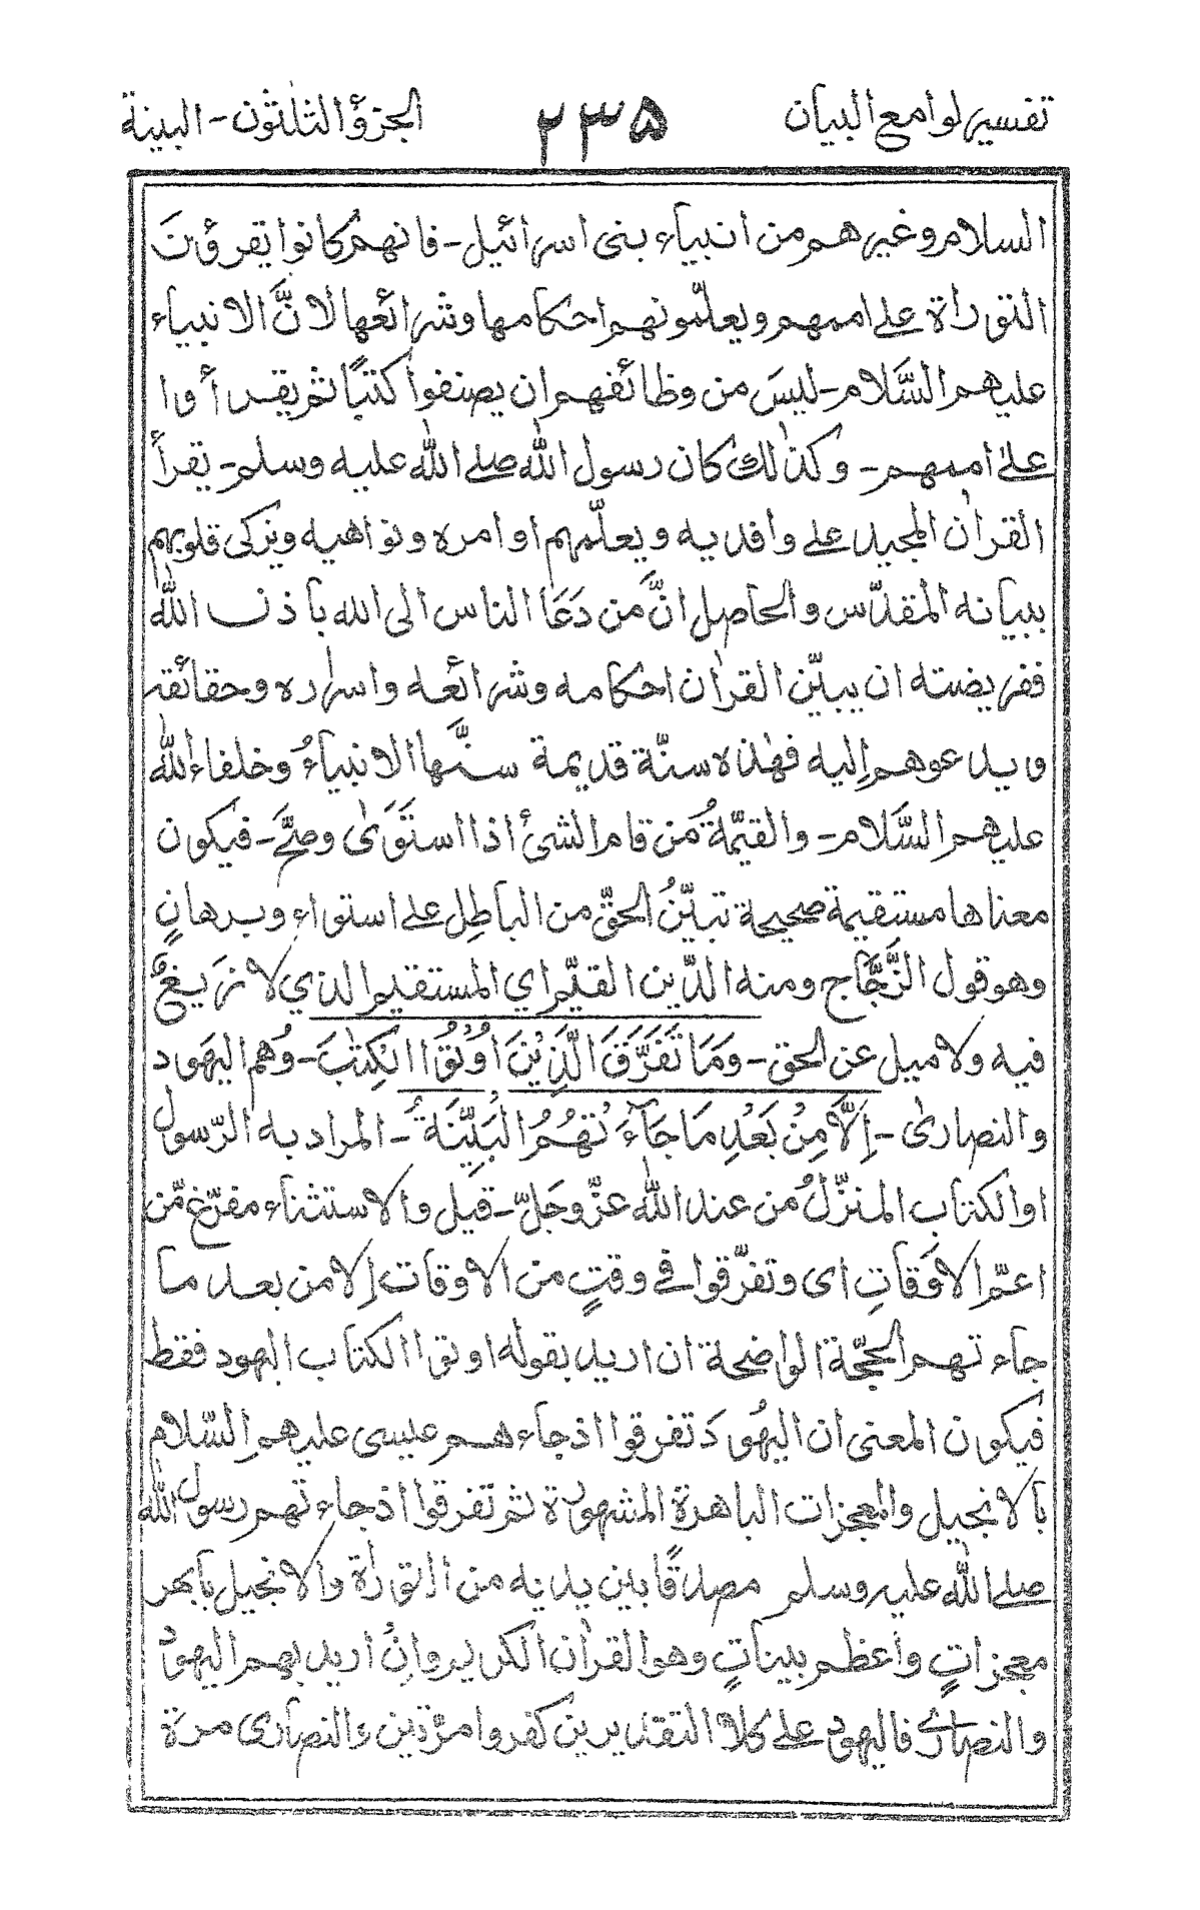 تفسير لوامع البيان ۲۳۵ الجزؤ الثلثون - البينة
السلام وغيرهم من انبياء بنى اسرائيل - فانهم كانوا يقرؤنَ
التوراة على اممهم ويعلّمونهم احكامها وشرائعها لانَّ الانبياء
عليهم السَّلام - ليسَ من وظائفهم ان يصنفوا كتبًا ثم يقرأوا
على اممهم - وكذٰلك كان رسول الله صلى الله عليه وسلم - يقرأ
القراٰن المجيد على وافديه ويعلّمهم اوامره ونواهيه ويزكى قلوبهم
ببيانه المقدّس والحاصل انَّ من دَعَا الناس الى الله بأذن الله
ففريضته ان يبيّن القراٰن احكامه وشرائعه واسراره وحقائقه
ويدعوهم اِليه فهٰذه سنّة قديمة سنَّها الانبياءُ وخلفاء الله
عليهم السَّلام - والقيّمةُ من قام الشئ اذا استَوَىٰ وصَحَّ - فيكون
معناها مستقيمة صحيحة تبيّنُ الحقّ من الباطِل على استواء وبرهانٍ
وهو قول الزَّجَّاج ومنه الدّين القيّم اي المستقيم الذي لا زيغٌ
فيه ولا ميل عن الحق - وَمَا تَفَرَّقَ الَّذِيْنَ اُوْتُوا الْكِتٰبَ - وَهم اليَهود
والنصارىٰ - اِلَّا مِنْۢ بَعْدِ مَا جَآءَتْهُمُ الْبَيِّنَةُ - المراد به الرّسول
او الكتاب المنزّلُ من عند الله عزّ وجَلّ - قيل والاستثناء مفرّغ مّن
اعمّ الاَوقاتِ اى وتفرّقوا فى وقتٍ من الاوقات اِلا من بعد ما
جاءتهم الحجّة الواضحة ان اريد بقوله اوتوا الكتاب اليهود فقط
فيكون المعنى ان اليهُودَ تفرقوا اذ جاءهم عيسى عليهم السّلام
بألانجيل والمعجزات الباهرة المشهورة ثم تّفرقوا اذ جاءتهم رسول الله
صلى الله عليه وسلم مصدقًا بين يديه من التوراة والانجيل بابهر
معجزاتٍ واعظم بيناتٍ وهو القران الكريم وانْ اريد بهم اليهود
والنصارىٰ فاليهود على كلا التقديرين كفروا مرّتين والنصارى مرة